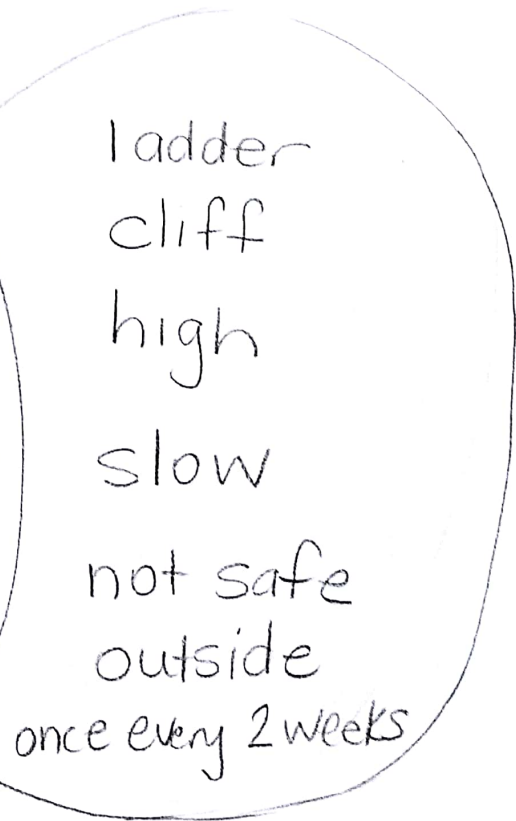 ladder
cliff
high
slow
not safe
outside
once every 2 weeks